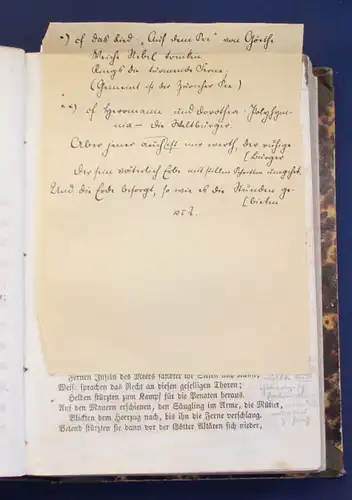 *) cf das Lied „Auf dem See" von Göthe
Weiche Nebel trinken
Rings die türmende Ferne,
(Gemeint ist der Züricher See)
**) cf Herrmann und Dorothea. Polyhym-
nia – die Weltbürger.
Aber jener auch ist mir werth, der ruhige
[Bürger
Der sein väterlich Erbe mit stillen Schritten umgehet.
Und die Erde besorgt, so wie es die Stunden ge-
[bieten
Fernen Inseln des Meers sandtet ihr Sitten und Kunst,
Weise sprachen das Recht an diesen geselligen Thoren;
Helden stürzten zum Kampf für die Penaten heraus.
Auf den Mauern erschienen, den Säugling im Arme, die Mütter,
Blickten dem Heerzug nach, bis ihn die Ferne verschlang.
Betend stürzten sie dann vor der Götter Altären sich nieder,